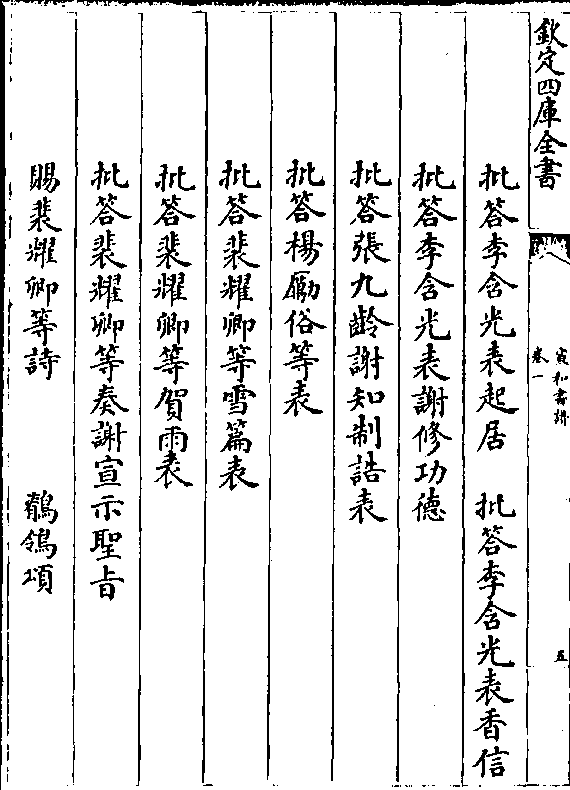 欽定四庫全書
宣和書譜
卷一
五
批答李含光表起居 批答李含光表香信
批答李含光表謝修功德
批答張九齡謝知制誥表
批答楊勵俗等表
批答裴耀卿等雪篇表
批答裴耀卿等賀雨表
批答裴耀卿等奏謝宣示聖旨
賜裴耀卿等詩 鶺鴒頌